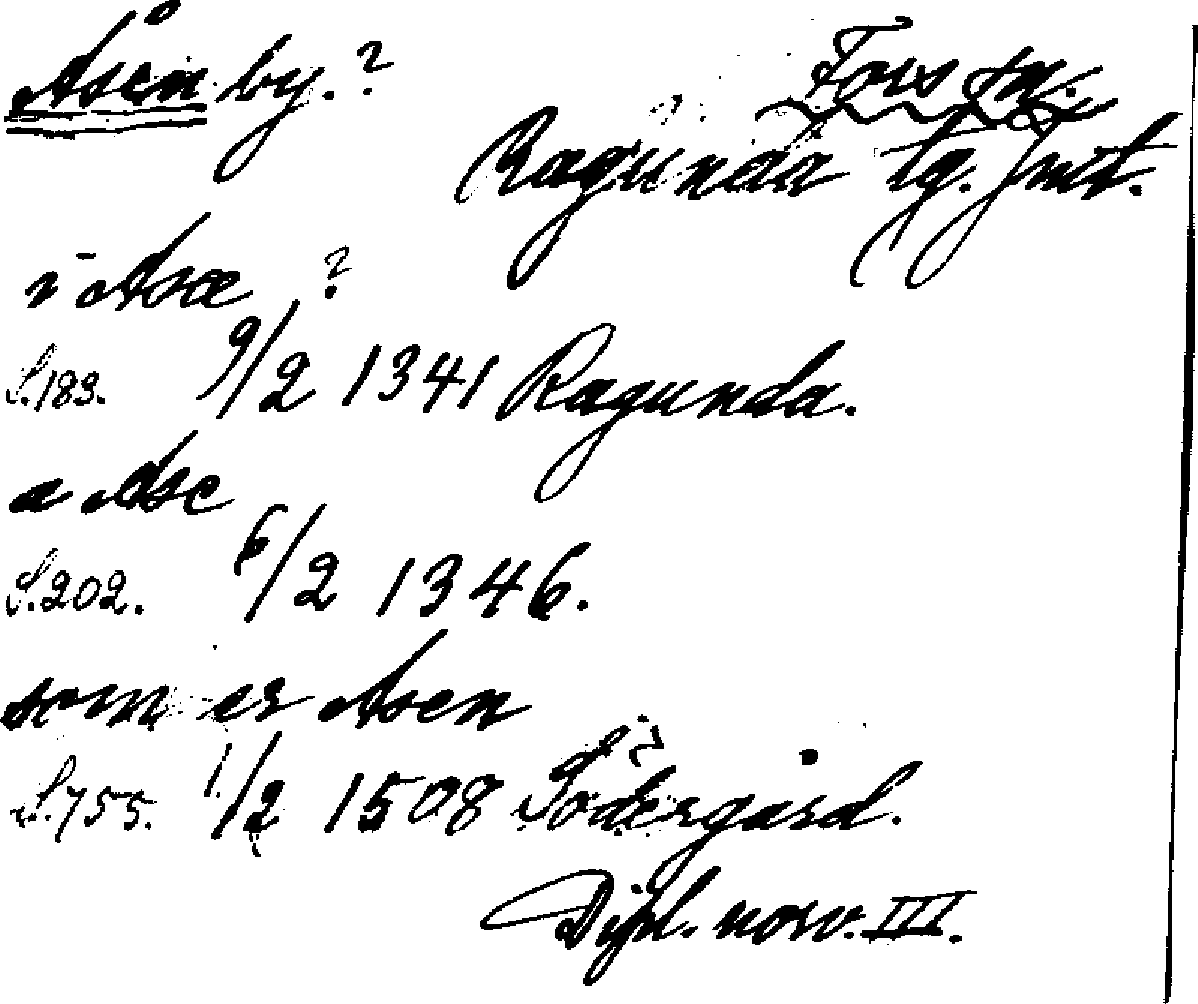 Åsen by.? Fors sn.
Ragunda tg. Jmt.
i Asæ ?
S.183. 9/2 1341 Ragunda.
a Ase
S.202. 6/2 1346.
som er Asen
S.755. 1/2 1508 Södergård.
Dipl. norv. III.